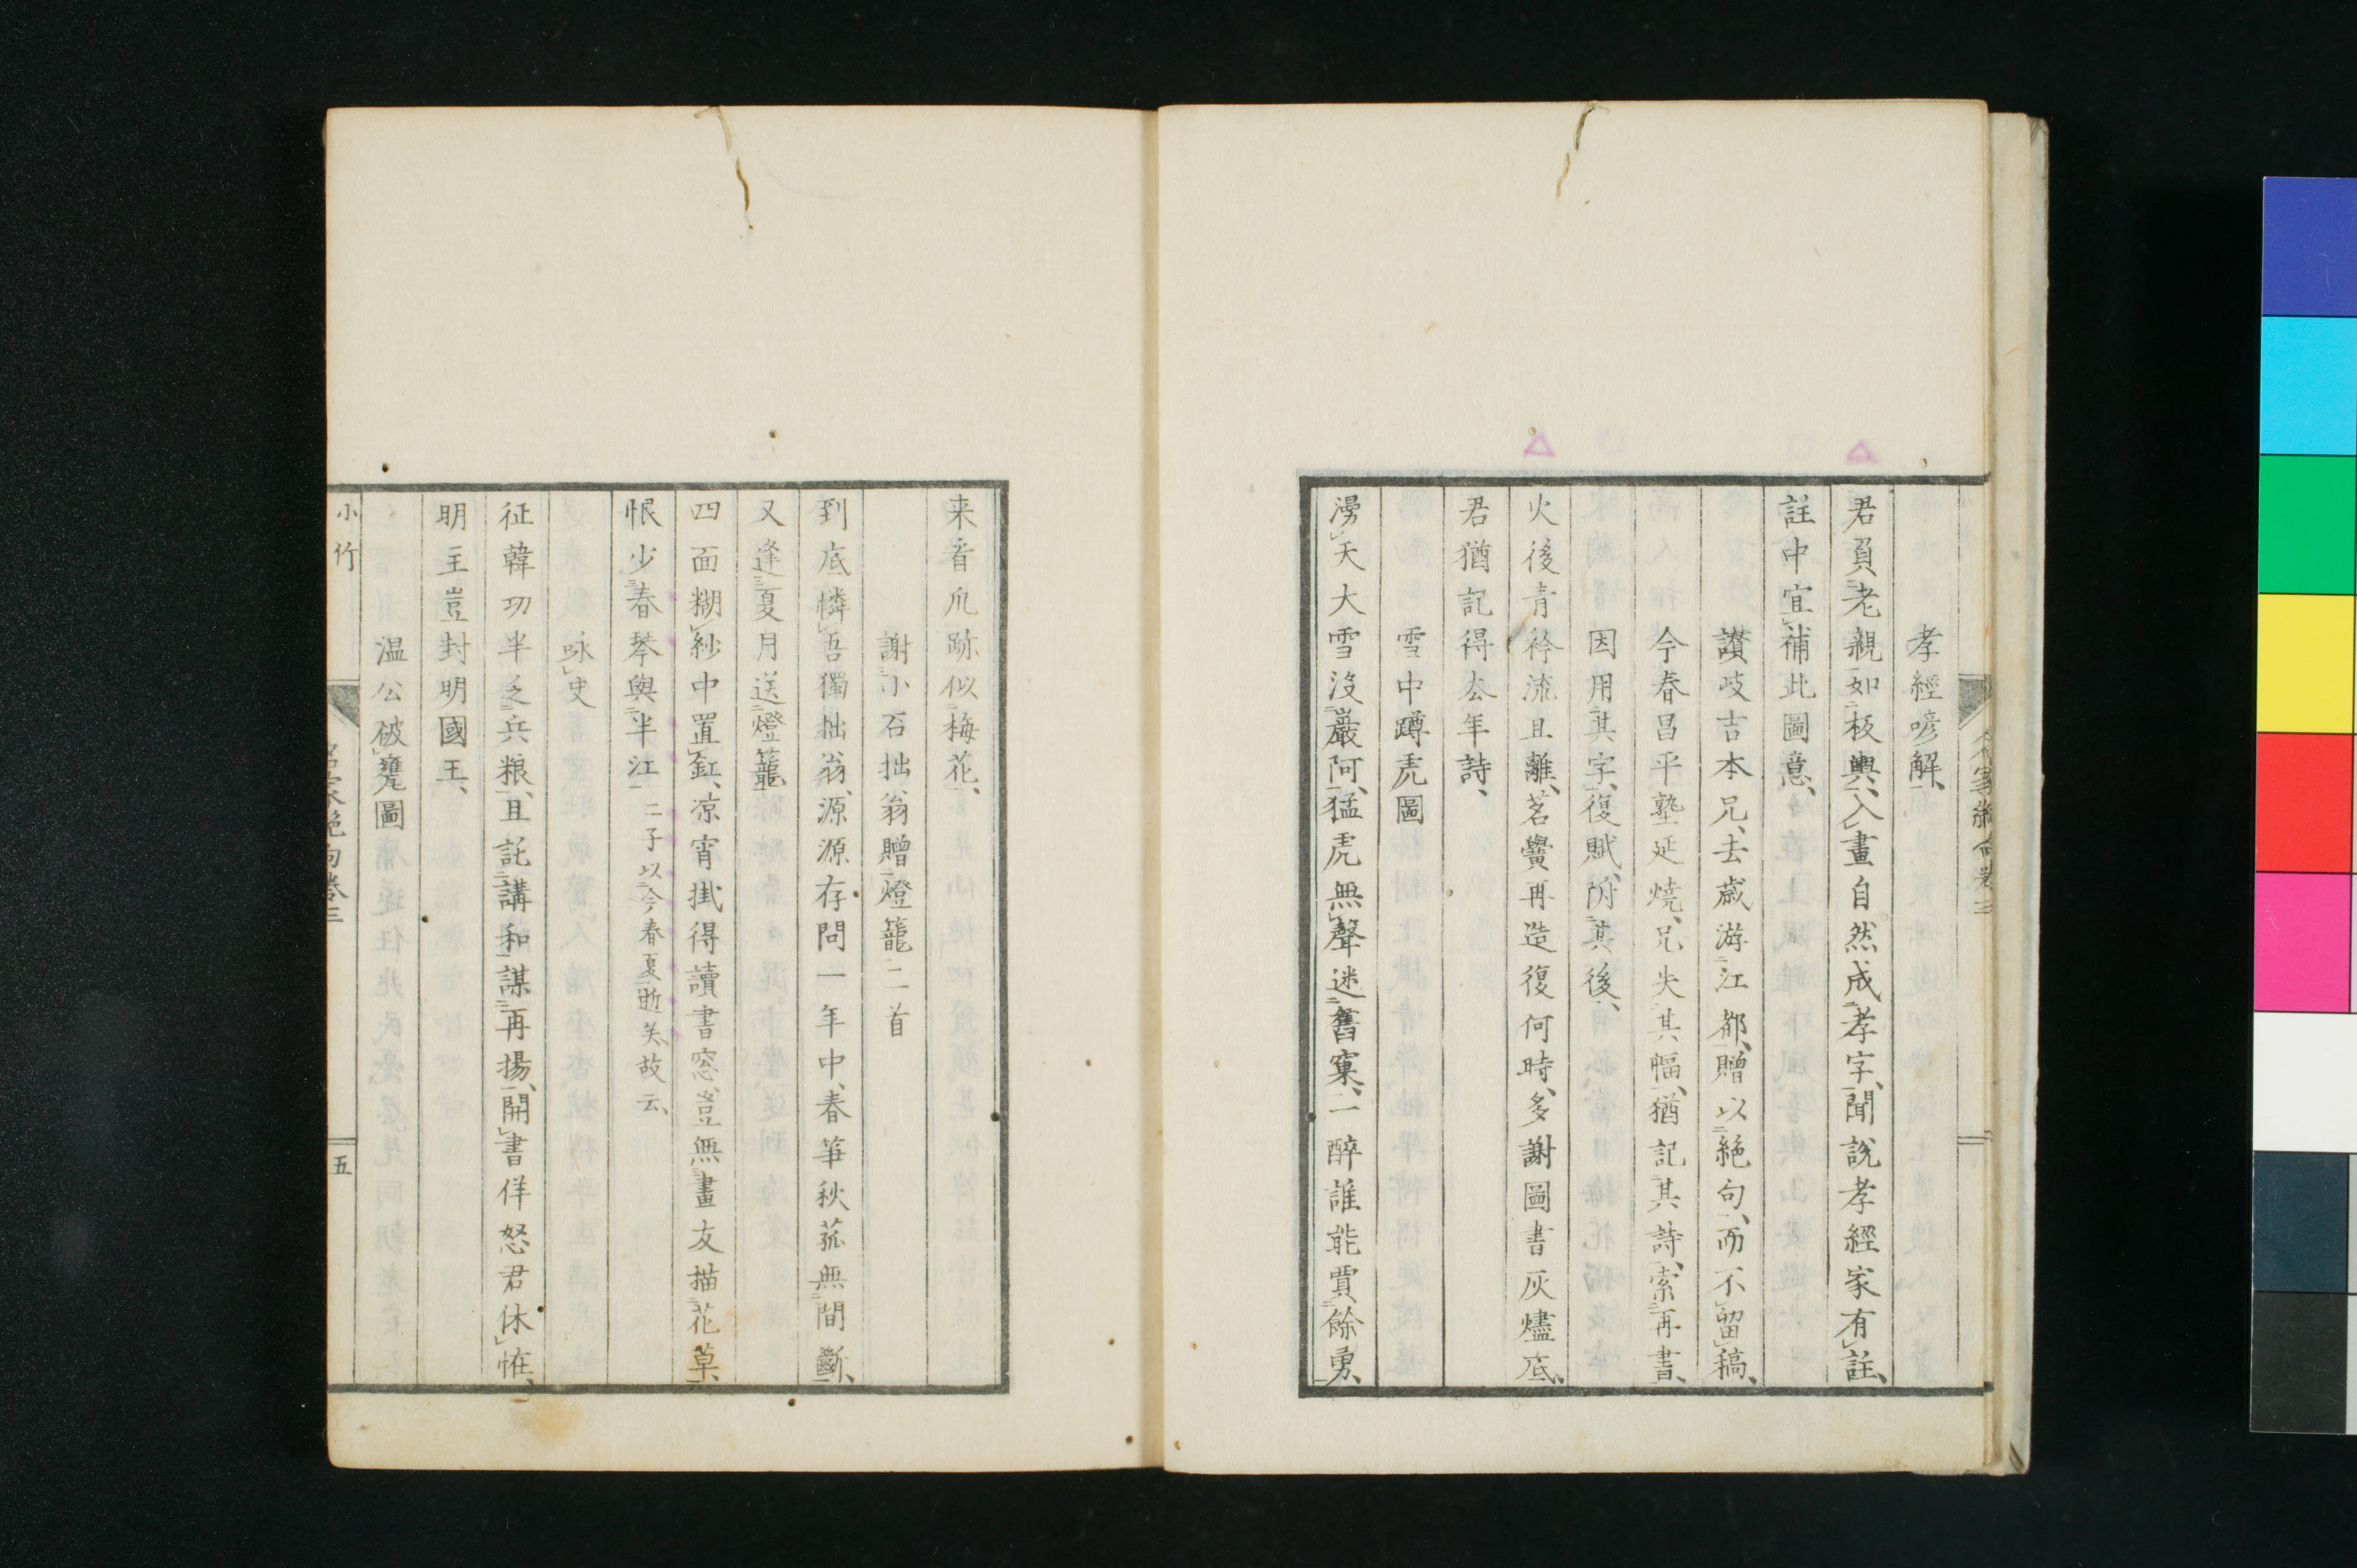 孝經啽解、
君負老親如板輿、入畫自然成孝字、聞說孝經家有註、
註中宜補此圖意、
讃岐吉本兄、去歲游江都、贈以絕句、而不留稿、
今春昌平塾延燒、兄失其幅、猶記其詩、索再書、
因用其字、復賦、附其後、
火後青衿流且離、茗黌再造復何時、多謝圖書灰燼底、
君猶記得去年詩、
雪中蹲虎圖
澷天大雪沒巖阿、猛虎無聲迷舊窠、一醉誰能賈餘勇、
来看爪跡似梅花、
謝小石拙翁贈燈籠二首
到底憐吾獨拙翁、源源存問一年中、春筝秋菰無間斷、
又逢夏月送燈籠
四面糊紗中置釭、凉宵掛得讀書窓、豈無畫友描花草、
恨少春琴與半江 二子以今春夏逝矣、故云、
咏史
征韓功半乏兵粮、且託講和謀再揚、開書佯怒君休恠、
明主豈封明國王、
温公破甕圖
小竹
名家絶句卷三
五